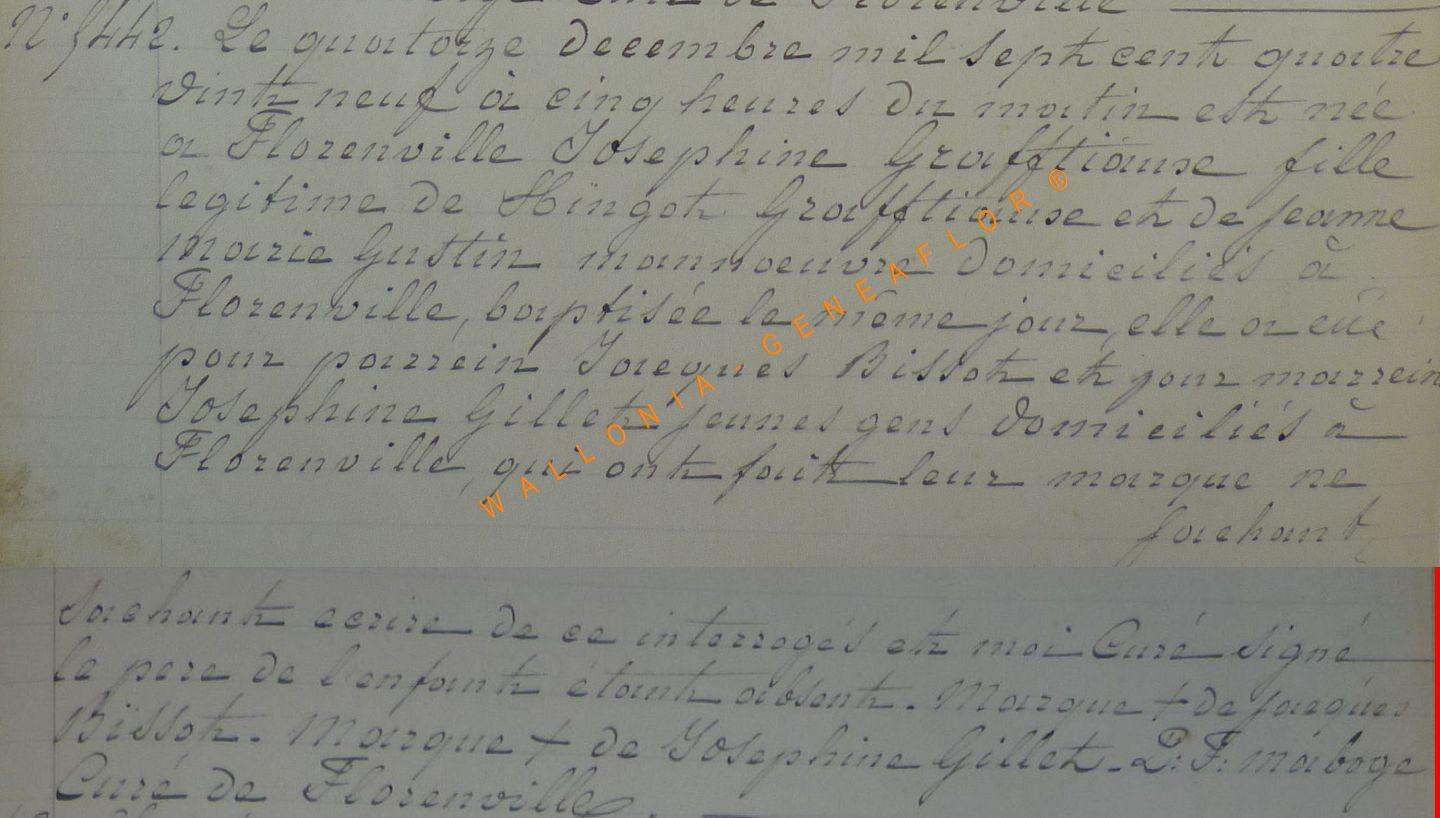 Curé de Florenville
N° 1442. Le quatorze decembre mil sept cent quatre
vint neuf à cinq heures du matin est née
a Florenville Josephine Grafftiause fille
legitime de Hingot Grafftiause et de jeanne
marie Gustin mannoeuvre domiciliés à
Florenville, baptisée le même jour, elle a eüe
pour parrein Jacques Bissot et pour marrein
Josephine Gillet jeunes gens domiciliés à
Florenville, qui ont fait leur marque ne
sachant
WALLONIA - GENEAFLOR ®
sachant ecrire de ce interrogés et moi Curé signé
le pere de l'enfant étant absent. Marque + de jacques
Bissot. Marque + de Josephine Gillet. P: F: maboge
Curé de Florenville.